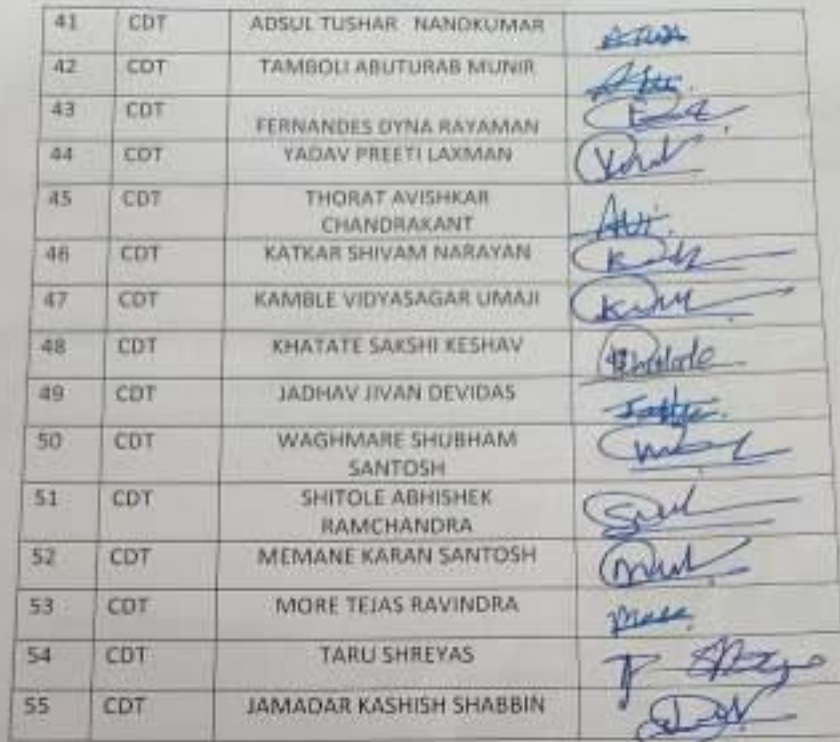 41 CDT ADSUL TUSHAR NANDKUMAR
42 CDT TAMBOLI ABUTURAB MUNIR
43 CDT FERNANDES DYNA RAYAMAN
44 CDT YADAV PREETI LAXMAN
45 CDT THORAT AVISHKAR
CHANDRAKANT
46 CDT KATKAR SHIVAM NARAYAN
47 CDT KAMBLE VIDYASAGAR UMAJI
48 CDT KHATATE SAKSHI KESHAV
49 CDT JADHAV JIVAN DEVIDAS
50 CDT WAGHMARE SHUBHAM
SANTOSH
51 CDT SHITOLE ABHISHEK
RAMCHANDRA
52 CDT MEMANE KARAN SANTOSH
53 CDT MORE TEJAS RAVINDRA
54 CDT TARU SHREYAS
55 CDT JAMADAR KASHISH SHABBIN